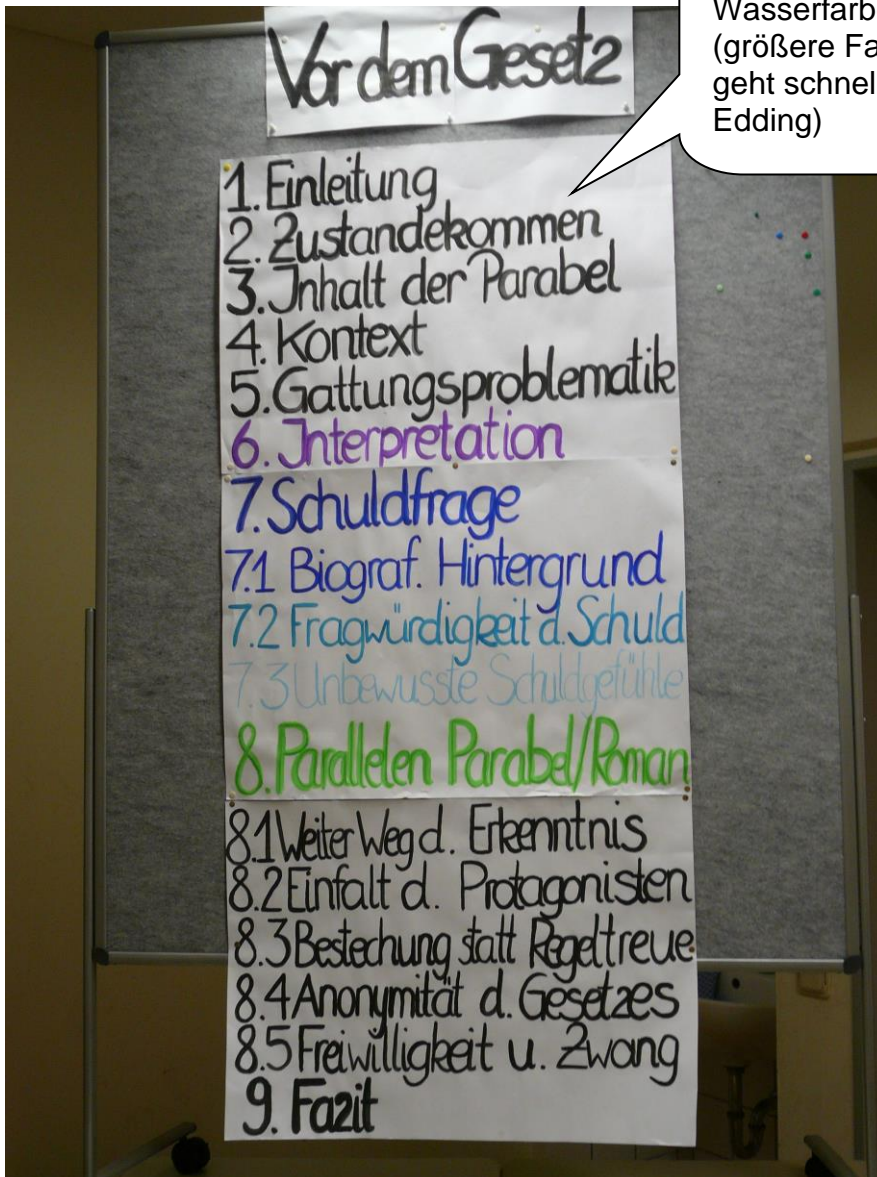 Wasserfarb
(größere Fa
geht schnel
Edding)
Vor dem Gesetz
1. Einleitung
2. Zustandekommen
3. Inhalt der Parabel
4. Kontext
5. Gattungsproblematik
6. Interpretation
7. Schuldfrage
7.1 Biograf. Hintergrund
7.2 Fragwürdigkeit d. Schuld
7.3 Unbewusste Schuldgefühle
8. Parallelen Parabel/Roman
8.1 Weiter Weg d. Erkenntnis
8.2 Einfalt d. Protagonisten
8.3 Bestechung statt Regeltreue
8.4 Anonymität d. Gesetzes
8.5 Freiwilligkeit u. Zwang
9. Fazit